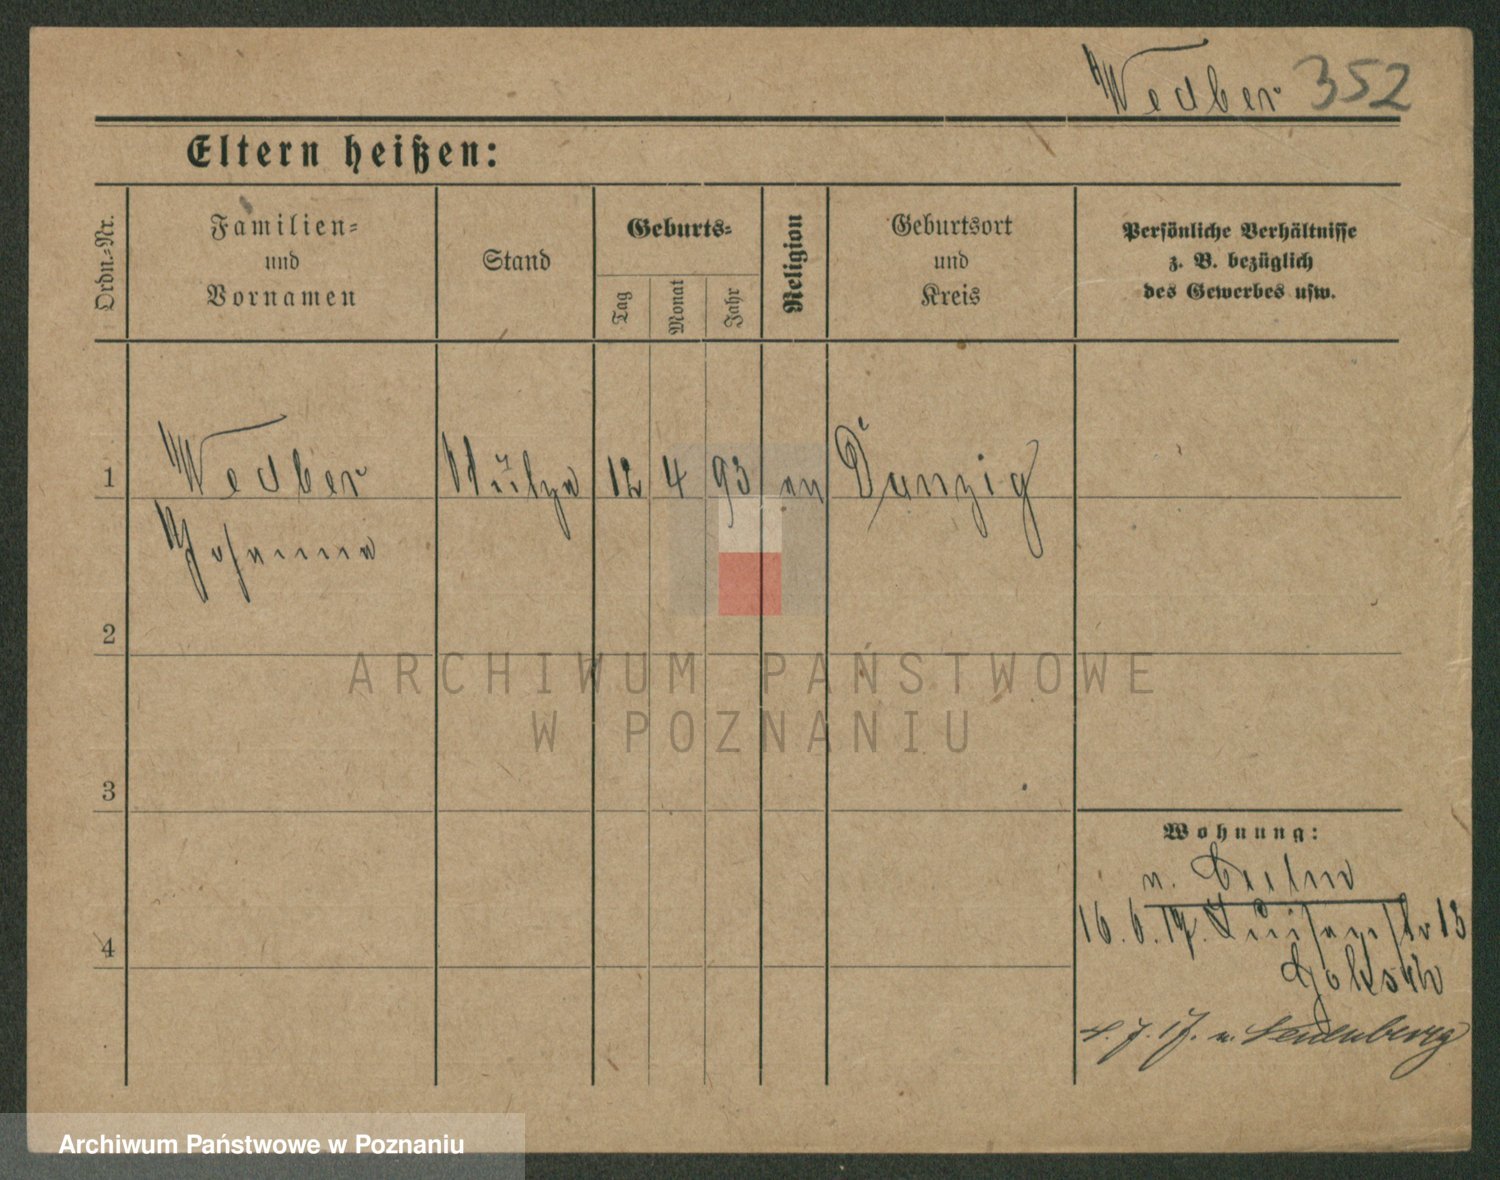 Wedber 352
Eltern heißen:
Ordn.-Nr.
Familien-
und
Vornamen
Stand
Geburts-
Tag
Monat
Jahr
Religion
Geburtsort
und
Kreis
Persönliche Verhältnisse
z. B. bezüglich
des Gewerbes usw.
1
Wedber Stütze 12 4 93 ev Danzig
Johanna
2
ARCHIWUM PAŃSTWOWE
W POZNANIU
3
Wohnung:
v. Berlin
16. 6. 17. Luisenstr 13
4
4. 7. 17. n.
Archiwum Państwowe w Poznaniu